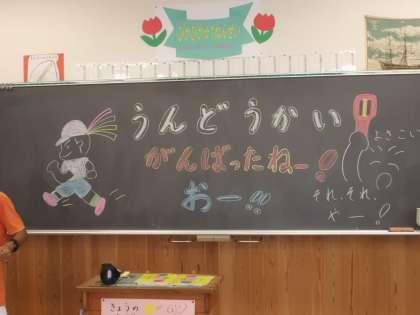 うんどうかい
がんばったねー!
おー!!
よさこい
それ、それ、
やー!
きょうの